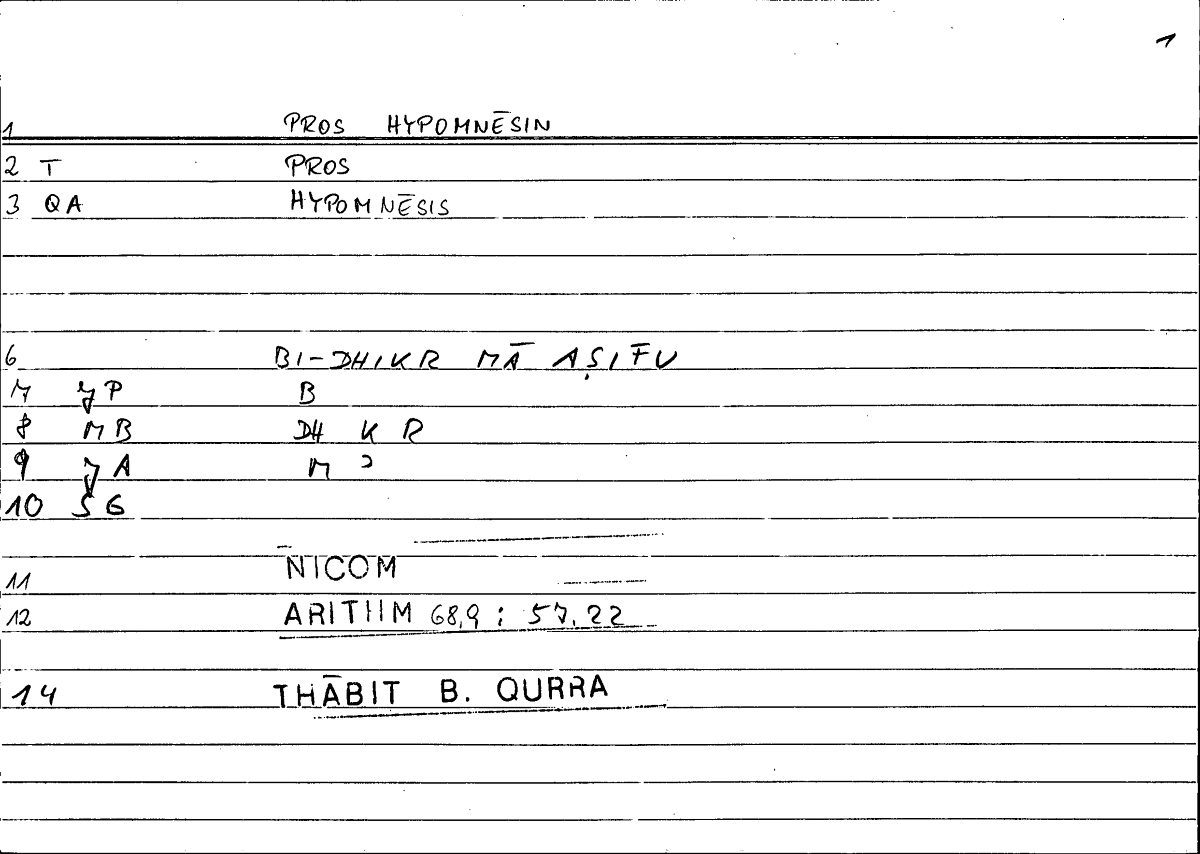 1
1 PROS HYPOMNĒSIN
2 T PROS
3 QA HYPOMNĒSIS
6 BI-DHIKR MĀ AṢIFU
7 YP B
8 MB DH K R
9 YA M ʾ
10 SG
11 NICOM
12 ARITIIM 68,9 ; 57.22
14 THĀBIT B. QURRA